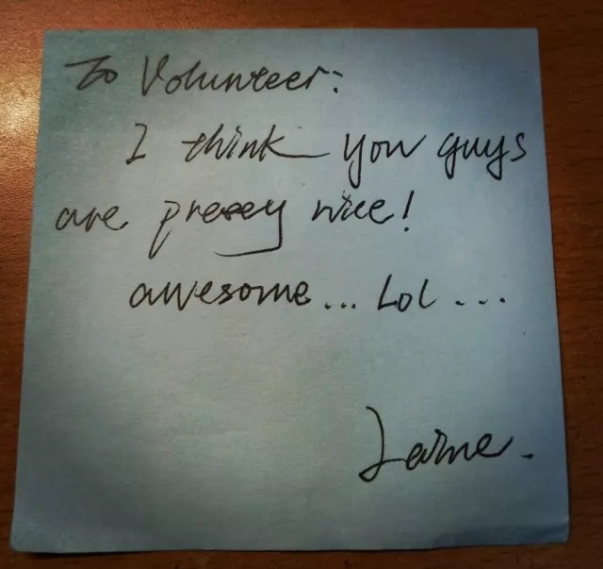 To Volunteer:
I think you guys
are pretty nice!
awesome... Lol...